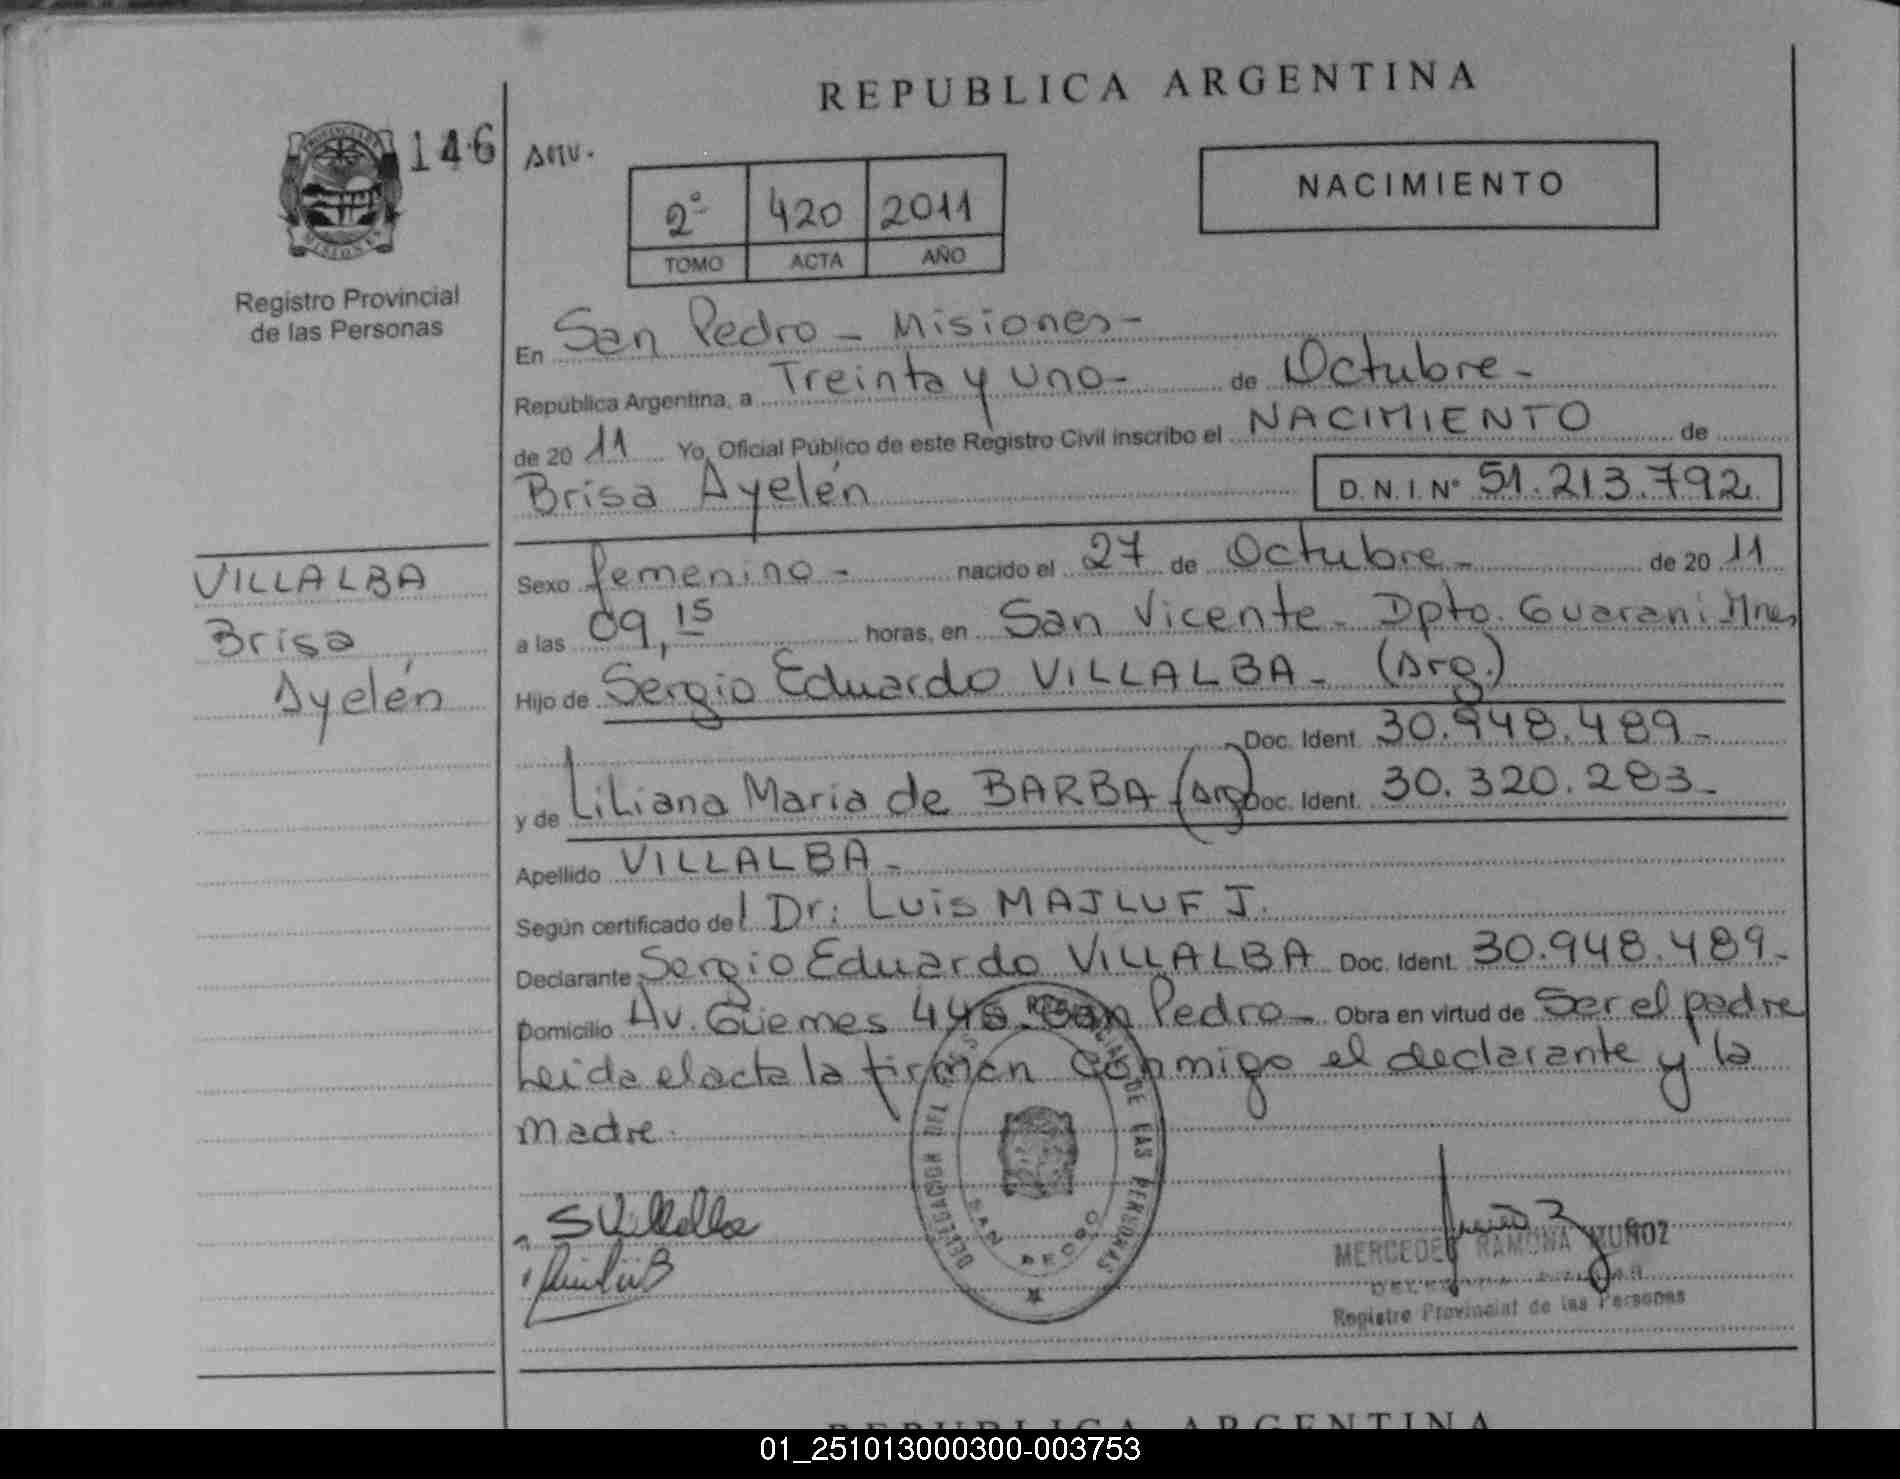 REPUBLICA ARGENTINA
146
ANV.
NACIMIENTO
2º 420 2011
TOMO ACTA AÑO
Registro Provincial
de las Personas
En San Pedro - Misiones -
República Argentina, a Treinta y uno - de Octubre -
de 20 11 Yo, Oficial Público de este Registro Civil inscribo el NACIMIENTO de
Brisa Ayelén D.N.I. Nº 51.213.792
VILLALBA
Brisa
Ayelén
Sexo femenino - nacido el 27 de Octubre - de 20 11
a las 09,15 horas, en San Vicente - Dpto. Guarani Mnes
Hijo de Sergio Eduardo VILLALBA - (Arg.)
Doc. Ident. 30.948.489 -
y de Liliana Maria de BARBA (Arg) Doc. Ident. 30.320.283 -
Apellido VILLALBA -
Según certificado del Dr: Luis MAJLUF J.
Declarante Sergio Eduardo VILLALBA Doc. Ident. 30.948.489 -
Domicilio Av. Güemes San Pedro - Obra en virtud de Ser el padre
Leida el acta la firman conmigo el declarante y la
madre.
DELEGACION DEL REGISTRO PROVINCIAL DE LAS PERSONAS
SAN PEDRO
SVillalba
MERCEDES RAMONA MUÑOZ
Registro Provincial de las Personas
REPUBLICA ARGENTINA
01_251013000300-003753